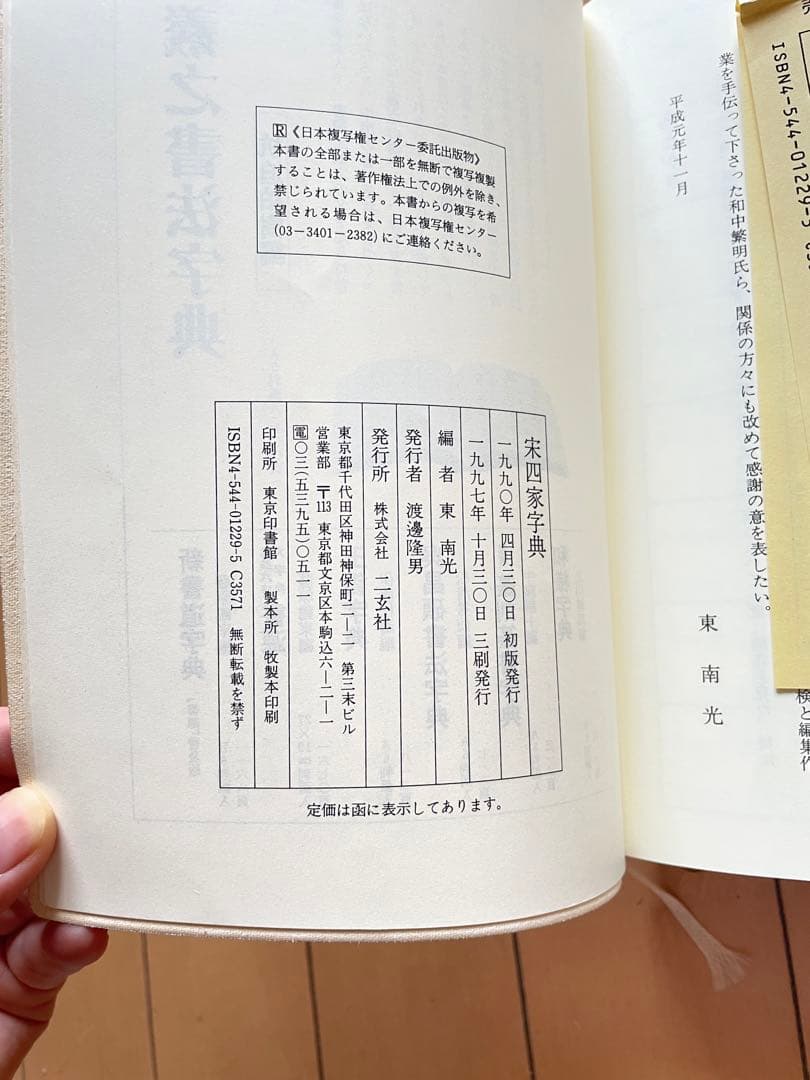 売
ISBN4-544-01229-5
業を手伝って下さった和中繁明氏ら、関係の方々にも改めて感謝の意を表したい。
平成元年十一月
東南光
検と編集作
Ⓡ《日本複写権センター委託出版物》
本書の全部または一部を無断で複写複製
することは、著作権法上での例外を除き、
禁じられています。本書からの複写を希
望される場合は、日本複写権センター
(03-3401-2382)にご連絡ください。
宋四家字典
一九九〇年 四月三〇日 初版発行
一九九七年 十月三〇日 三刷発行
編者 東南光
発行者 渡邊隆男
発行所 株式会社 二玄社
東京都千代田区神田神保町二―二 第三末ビル
営業部 〒113 東京都文京区本駒込六―二―一
電〇三(五三九五)〇五一一
印刷所 東京印書館 製本所 牧製本印刷
ISBN4-544-01229-5 C3571 無断転載を禁ず
定価は函に表示してあります。
義之書法字典
新書道字典